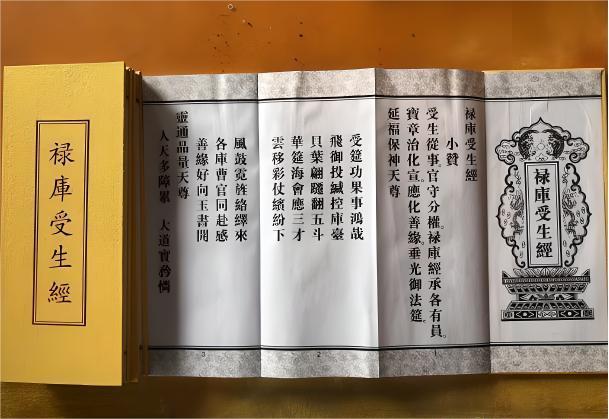 禄庫受生經
禄庫受生經
禄庫受生經
小贊
受生從事。官守分權。禄庫經承各有員。
寶章治化宣。應化善緣。垂光御法筵。
延福保神天尊
1
受筵功果事鴻哉
飛御投緘控庫臺
貝葉翩翩翻五斗
華筵海會應三才
雲移彩仗繽紛下
2
風鼓霓旌絡繹來
各庫曹官同赴感
善緣好向玉書開
靈通品量天尊
人天多障累 大道實矜憐
3